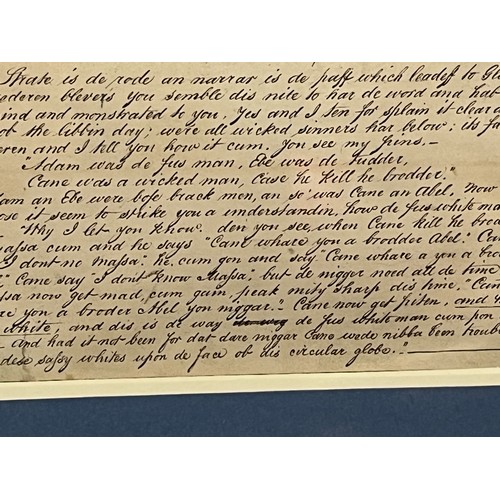 Strate is de rode an narrar is de paff which leadef to Glo
ederen blevers you semble dis nite to har de word and hab
ind and monstrated to you, Yes and I ten for splain it clear a
ob the libbin day; were all wicked sinners har below; its fac
eren and I tell you how it cum. You see my frins.—
"Adam was de fus man, Eve was de tudder,
Cane was a wicked man, Case he kill he brodder."
am an Eve were bofe brack men, an so was Cane an Abel. Now
ose it seem to strike you a understandin, how de fus white ma
"Why I let you know. den you see, when Cane kill he brod
massa cum and he says "Cane whare you a brodder Abel" Ca
I dont no massa; he cum gon and say "Cane whare a you a bro
" Cane say "I don't know Massa; but de nigger noed all de time
ssa now get mad, cum gain, peak mity sharp dis time, "Can
re you a broder Abel you niggar." Cane now get friten, and h
white, and dis is de way de fus white man cum pon
And had it not been for dat dare niggar Cane wede nibba been troub
dese sassy whites upon de face ob dis circular globe.—